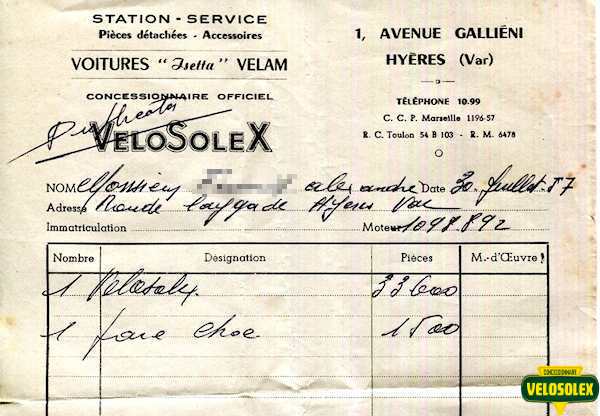 STATION - SERVICE
Pièces détachées - Accessoires
VOITURES "Isetta" VELAM
CONCESSIONNAIRE OFFICIEL
Duplicata
VELOSOLEX
1, AVENUE GALLIÉNI
HYÈRES (Var)
TÉLÉPHONE 10.99
C. C. P. Marseille 1196-57
R. C. Toulon 54 B 103 - R. M. 6478
NOM Monsieur alexandre Date 30 Juillet 57
Adresse Hyeres Var
Immatriculation Moteur 1098.892
Nombre Désignation Pièces M.-d'Œuvre
1 Velosolex 33600
1 pare choc 1500
CONCESSIONNAIRE
VELOSOLEX